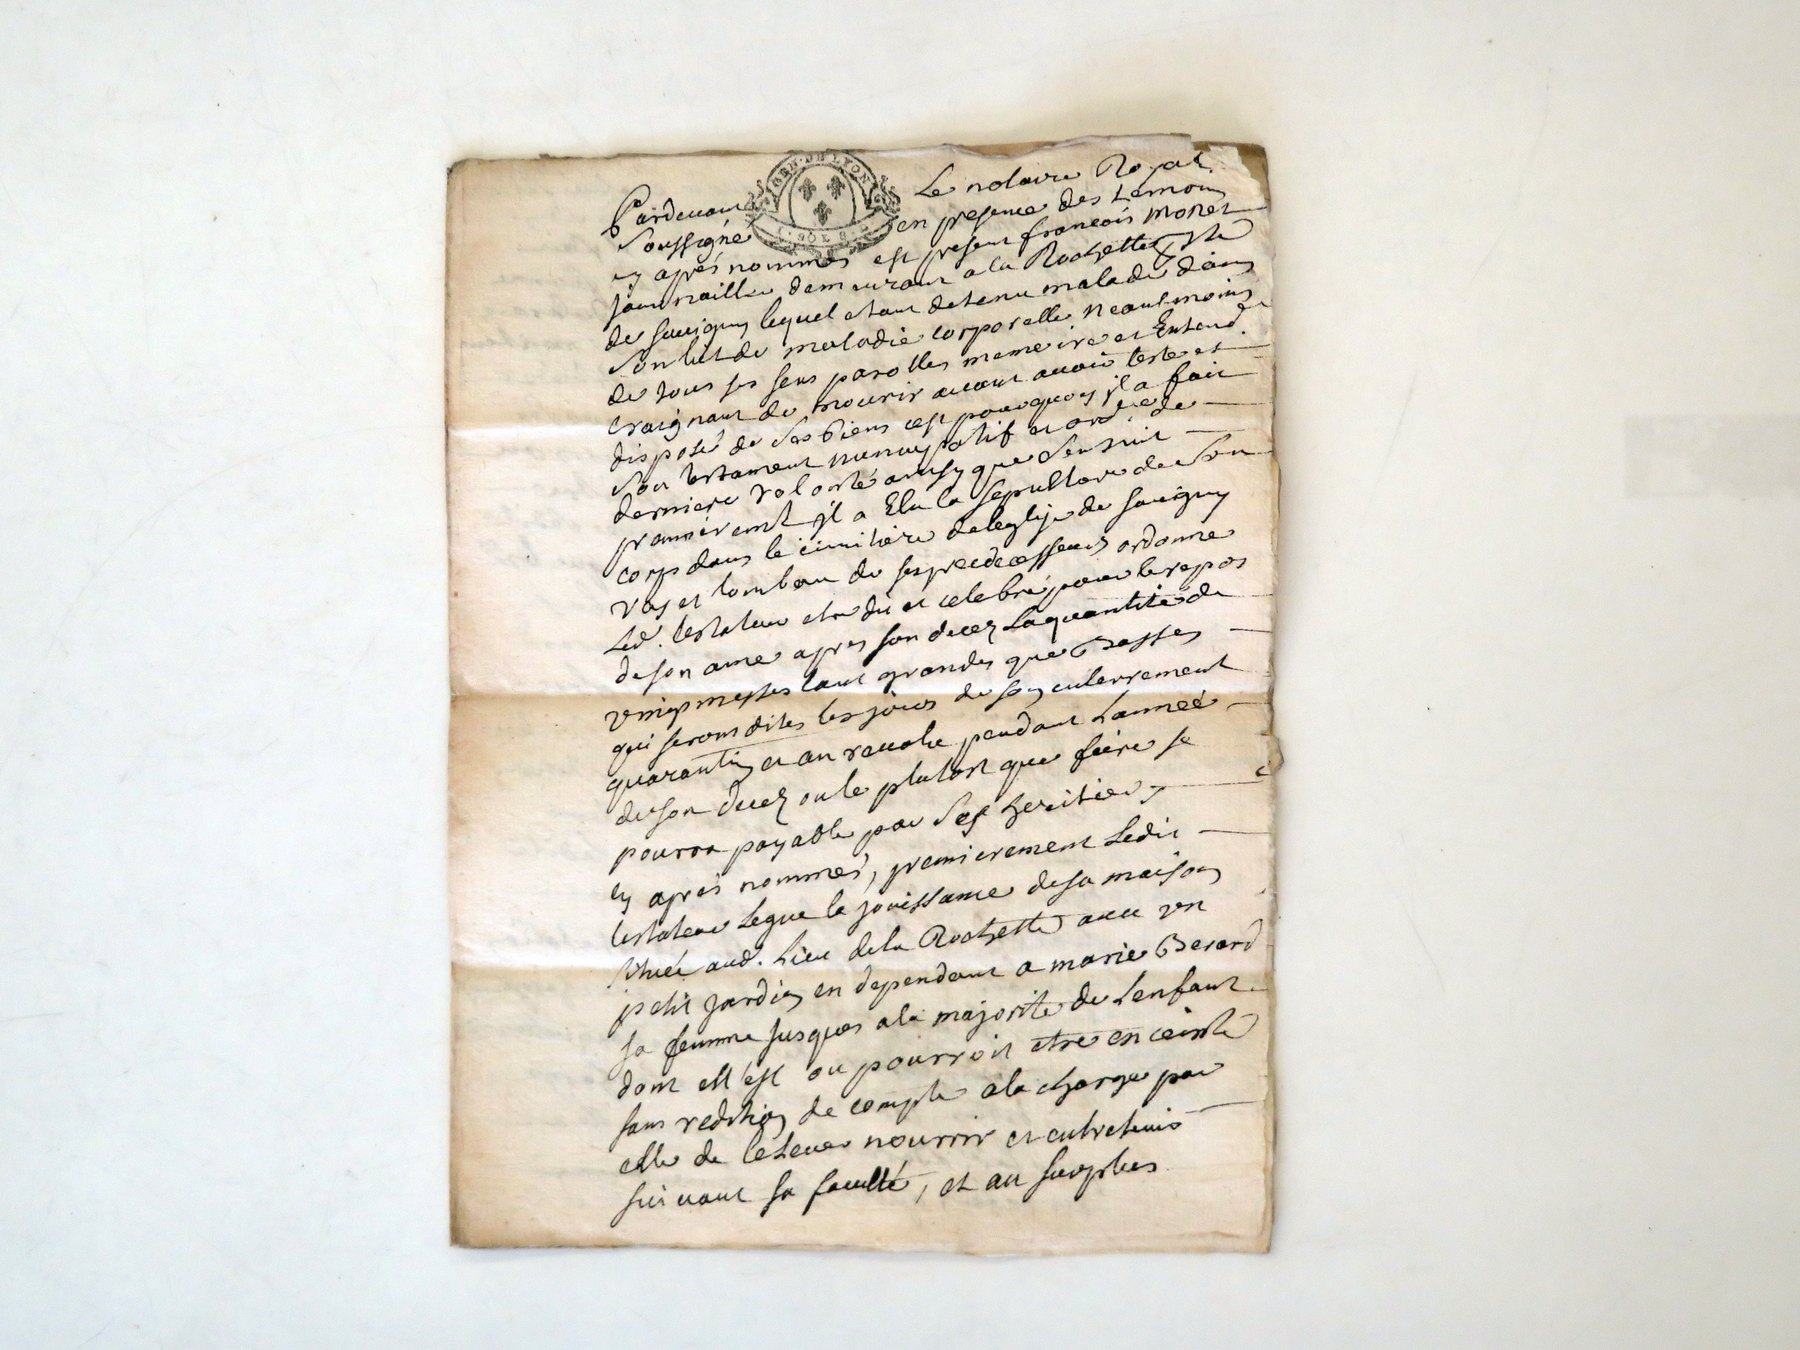 GEN·DE LYON
SOLS
Pardevant Le notaire Royal
soussigné en presence des temoins
cy apres nommés est present francois monet
journaillier demeurant a la Rochette
de savigny lequel etant detenu malade dans
son lit de maladie corporelle neantmoins
de tous ses sens parolles memoire et Entend.
craignant de mourir avant avoir testé et
disposé de ses biens cest pourquoy jl a fait
son testament nuncupatif et ord. de
derniere volonté ainsy que sensuit
premierement jl a Elu la sepulture de son
corps dans le cimitiere de leglise de savigny
vas et tombeau de ses predecesseurs ordonne
Led. testateur etre dit et celebré pour le repos
de son ame apres son decez La quantité de
vingt messes tant grandes que Basses
qui seront dites les jours de son enterrement
quarantin et an revolu pendant Lannée
de son decez ou le plutost que faire se
pourra payable par ses heritiers
cy apres nommés, premierement Ledit
testateur Legue la jouissance de sa maison
située aud. Lieu de la Rochette avec un
petit jardin en dependant a marie Berard
sa femme jusques a la majorité de Lenfant
dont ell'est ou pourroit etre enceinte
sans redition de compte a la charge par
elle de lelever nourrir et entretenir
suivant sa faculté, et au surplus